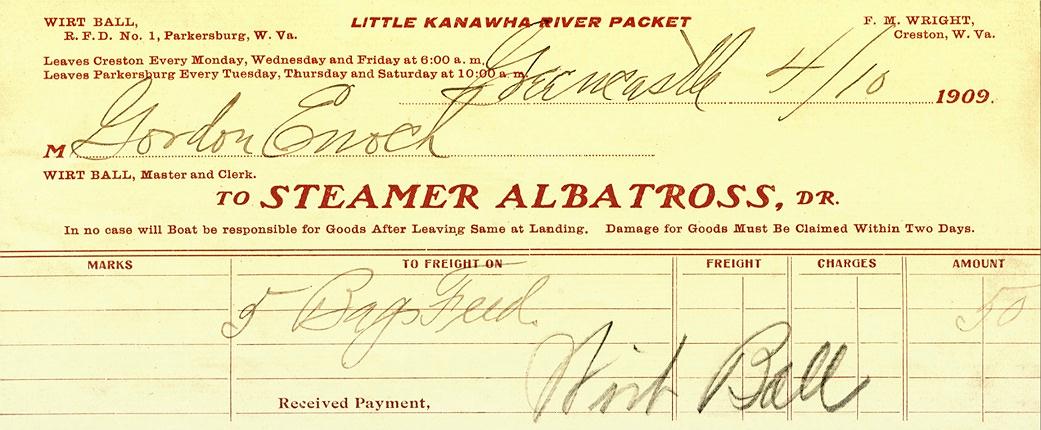 WIRT BALL,
R. F. D. No. 1, Parkersburg, W. Va.
LITTLE KANAWHA RIVER PACKET
F. M. WRIGHT,
Creston, W. Va.
Leaves Creston Every Monday, Wednesday and Friday at 6:00 a. m.
Leaves Parkersburg Every Tuesday, Thursday and Saturday at 10:00 a. m.
Greencastle 4/10 1909.
M Gordon Enoch
WIRT BALL, Master and Clerk.
TO STEAMER ALBATROSS, DR.
In no case will Boat be responsible for Goods After Leaving Same at Landing. Damage for Goods Must Be Claimed Within Two Days.
MARKS TO FREIGHT ON FREIGHT CHARGES AMOUNT
5 Bags Feed 50
Received Payment, Wirt Ball